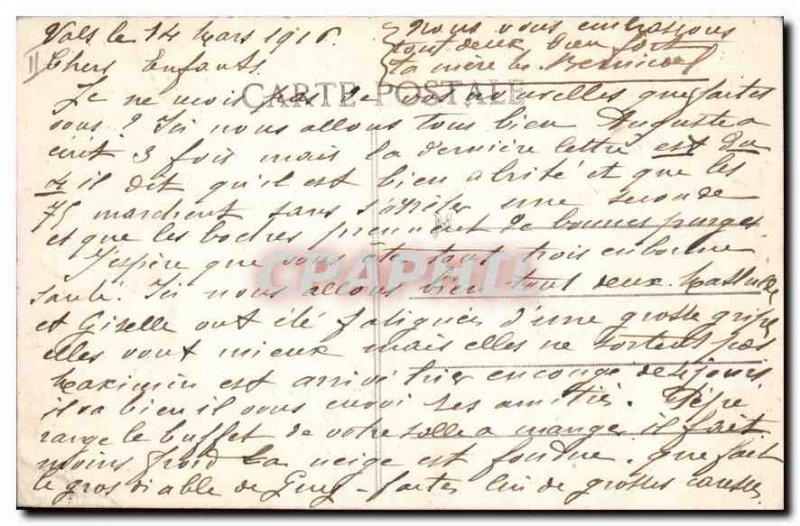 Vals le 14 Mars 1916.
Chers Enfants
CARTE POSTALE
Je ne vois pas de vos nouvelles que faites
vous ? Ici nous allons tous bien Auguste a
écrit 3 fois mais la dernière lettre est du
4 il dit qu'il est bien abrité et que les
75 marchent sans s'arrêter une seconde
et que les boches prennent de bonnes purges
J'espère que vous ête tout trois en bonne
santé. Ici nous allons bien tout deux.
et Giselle ont été fatiguées d'une grosse grippe
elles vont mieux mais elles ne sortent pas
Maximin est arrivé hier en congé de 7 jours
il va bien il vous envoi ses amitiés. Pépé
range le buffet de votre salle a manger il fait
moins froid La neige est fondue. que fait
le gros diable de Guy - faites lui de grosses caresses
Nous vous embrassons
tout deux bien fort
ta mère
CPAPHIL